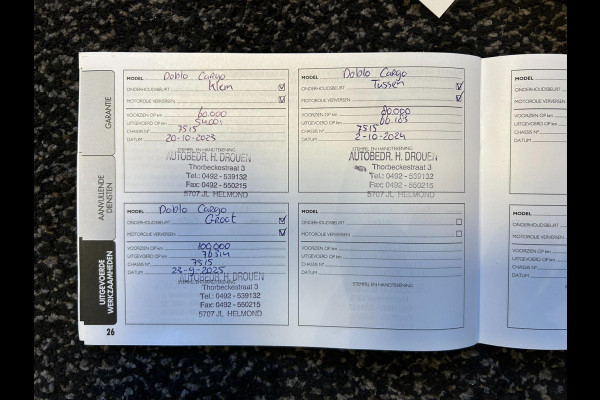 GARANTIE
AANVULLENDE
DIENSTEN
UITGEVOERDE
WERKZAAMHEDEN
26
MODEL Doblo Cargo
ONDERHOUDSBEURT Klein
MOTOROLIE VERVERSEN
VOORZIEN OP km 60.000
UITGEVOERD OP km
CHASSIS N° 7515
DATUM 20-10-2023
STEMPEL EN HANDTEKENING
AUTOBEDR. H. DROUEN
Thorbeckestraat 3
Tel.: 0492 - 539132
Fax: 0492 - 550215
5707 JL HELMOND
MODEL Doblo Cargo
ONDERHOUDSBEURT Tussen
MOTOROLIE VERVERSEN
VOORZIEN OP km 80.000
UITGEVOERD OP km
CHASSIS N° 7515
DATUM 2-10-2024
STEMPEL EN HANDTEKENING
AUTOBEDR. H. DROUEN
Thorbeckestraat 3
Tel.: 0492 - 539132
Fax: 0492 - 550215
5707 JL HELMOND
MODEL Doblo Cargo
ONDERHOUDSBEURT Groot
MOTOROLIE VERVERSEN
VOORZIEN OP km 100.000
UITGEVOERD OP km 70514
CHASSIS N° 7515
DATUM 23-9-2025
AUTOBEDR. H. DROUEN
Thorbeckestraat 3
Tel.: 0492 - 539132
Fax: 0492 - 550215
5707 JL HELMOND
MODEL
ONDERHOUDSBEURT
MOTOROLIE VERVERSEN
VOORZIEN OP km
UITGEVOERD OP km
CHASSIS N°
DATUM
STEMPEL EN HANDTEKENING
MODEL
ONDERHOUDSBEURT
MOTOROLIE VERVERSEN
VOORZIEN OP km
UITGEVOERD OP km
CHASSIS N°
DATUM
MODEL
ONDERHOUDSBEURT
MOTOROLIE VERVERSEN
VOORZIEN OP km
UITGEVOERD OP km
CHASSIS N°
DATUM